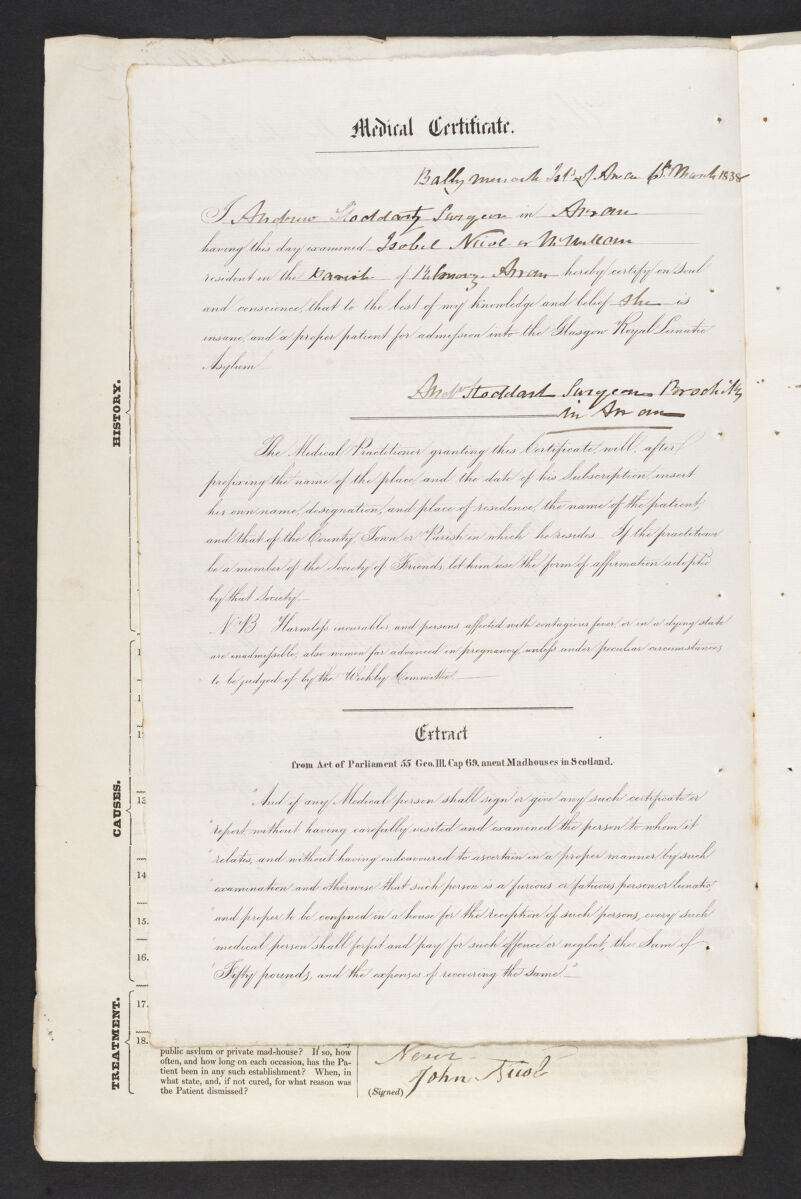 Medical Certificate.
Ballymenoch Isl^d of Arran 6th March 1838
I Andrew Stoddart, Surgeon in Arran
having this day examined Isobel Nicol or McMillan
resident in the Parish of Kilmory Arran hereby certify on soul
and conscience, that to the best of my knowledge and belief she is
insane, and a proper patient for admission into the Glasgow Royal Lunatic
Asylum
And^w Stoddart Surgeon
in Arran
The Medical Practitioner granting this Certificate, will, after
prefixing the name of the place, and the date of his Subscription, insert
his own name, designation, and place of residence, the name of the patient,
and that of the County, Town or Parish in which he resides. If the practitioner
be a member of the Society of Friends, let him use the form of affirmation adopted
by that Society.
N.B. Harmless incurables, and persons affected with contagious fever, or in a dying state
are inadmissible; also women far advanced in pregnancy, unless under peculiar circumstances,
to be judged of by the Weekly Committee.
Extract
from Act of Parliament 55 Geo. III. Cap 69, anent Madhouses in Scotland.
"And if any Medical person shall sign or give any such certificate or
"report, without having carefully visited and examined the person to whom it
"relates, and without having endeavoured to ascertain in a proper manner by such
"examination and otherwise that such person is a furious or fatuous person or lunatic,
"and proper to be confined in a house for the reception of such persons, every such
"medical person shall forfeit and pay for such offence or neglect, the Sum of
"Fifty pounds, and the expenses of recovering the same"
HISTORY.
CAUSES.
TREATMENT.
1
1
1
13
14
15.
16.
17.
18.
public asylum or private mad-house? If so, how
often, and how long on each occasion, has the Pa-
tient been in any such establishment? When, in
what state, and, if not cured, for what reason was
the Patient dismissed?
Never
(Signed) John Nicol